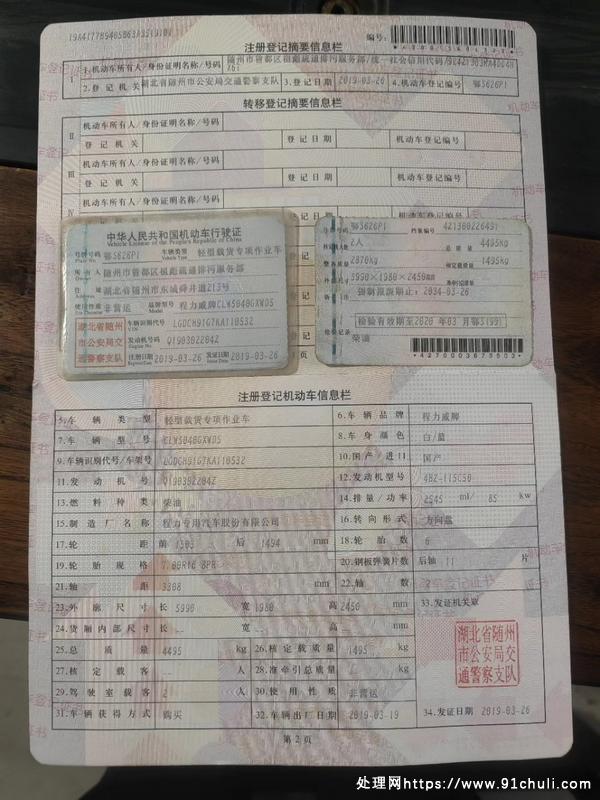 注册登记摘要信息栏
编号:
1.机动车所有人/身份证明名称/号码 随州市曾都区祖跑疏通排污服务部/统一社会信用代码/
2.登记机关 湖北省随州市公安局交通警察支队 3.登记日期 2019-03-26 4.机动车登记编号 鄂S626P1
转移登记摘要信息栏
II 机动车所有人/身份证明名称/号码
登记机关 登记日期 机动车登记编号
III 机动车所有人/身份证明名称/号码
登记机关 登记日期 机动车登记编号
机动车所有人/身份证明名称/号码
中华人民共和国机动车行驶证
Vehicle License of the People's Republic of China
号牌号码 鄂S626P1 车辆类型 轻型载货专项作业车
Plate No. Vehicle Type
所有人 随州市曾都区祖跑疏通排污服务部
Owner
住址 湖北省随州市东城舜井道213号
Address
使用性质 非营运 品牌型号 程力威牌CLW5040GXWD5
Model
湖北省随州市公安局交通警察支队
车辆识别代号 LGDCH91G7KA110532
VIN
发动机号码 Q190302204Z
Engine No.
注册日期 2019-03-26 发证日期 2019-03-26
号牌号码 鄂S626P1 档案编号 421300226491
核定载人数 2人 总质量 4495kg
整备质量 2870kg 核定载质量 1495kg
外廓尺寸 5990×1980×2450mm 准牵引总质量
备注 强制报废期止:2034-03-26
检验有效期至2020年03月 鄂S(99)
检验记录
柴油
*4270003678503*
注册登记机动车信息栏
5.车辆类型 轻型载货专项作业车 6.车辆品牌 程力威牌
7.车辆型号 CLW5040GXWD5 8.车身颜色 白/蓝
9.车辆识别代号/车架号 LGDCH91G7KA110532 10.国产/进口 国产
11.发动机号 Q190302204Z 12.发动机型号 4BZ-115C50
13.燃料种类 柴油 14.排量/功率 2545 ml/ 85 kw
15.制造厂名称 程力专用汽车股份有限公司 16.转向形式 方向盘
17.轮距 前 1503 后 1494 mm 18.轮胎数 6
19.轮胎规格 7.00R16 8PR 20.钢板弹簧片数 后轴 11 片
21.轴距 3308 mm 22.轴数 2
23.外廓尺寸 长 5990 宽 1980 高 2450 mm 33.发证机关章
24.货厢内部尺寸 长 -- 宽 -- 高 -- mm
湖北省随州市公安局交通警察支队
25.总质量 4495 kg 26.核定载质量 1495 kg
27.核定载客 -- 人 28.准牵引总质量 -- kg
29.驾驶室载客 2 人 30.使用性质 非营运
31.车辆获得方式 购买 32.车辆出厂日期 2019-03-19 34.发证日期 2019-03-26
第2页
处理网https://www.91chuli.com/